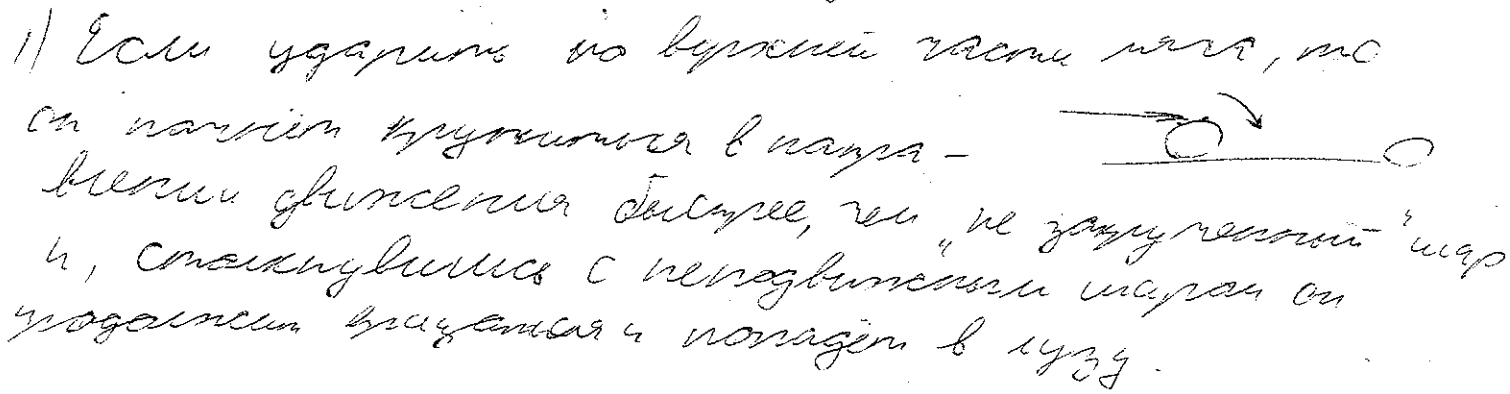 1) Если ударить по верхней части мяча, то
он начнёт кружиться в напра-
влении движения быстрее, чем „не закрученный" шар
и, столкнувшись с неподвижным шаром он
продолжит вращаться и попадёт в лузу.